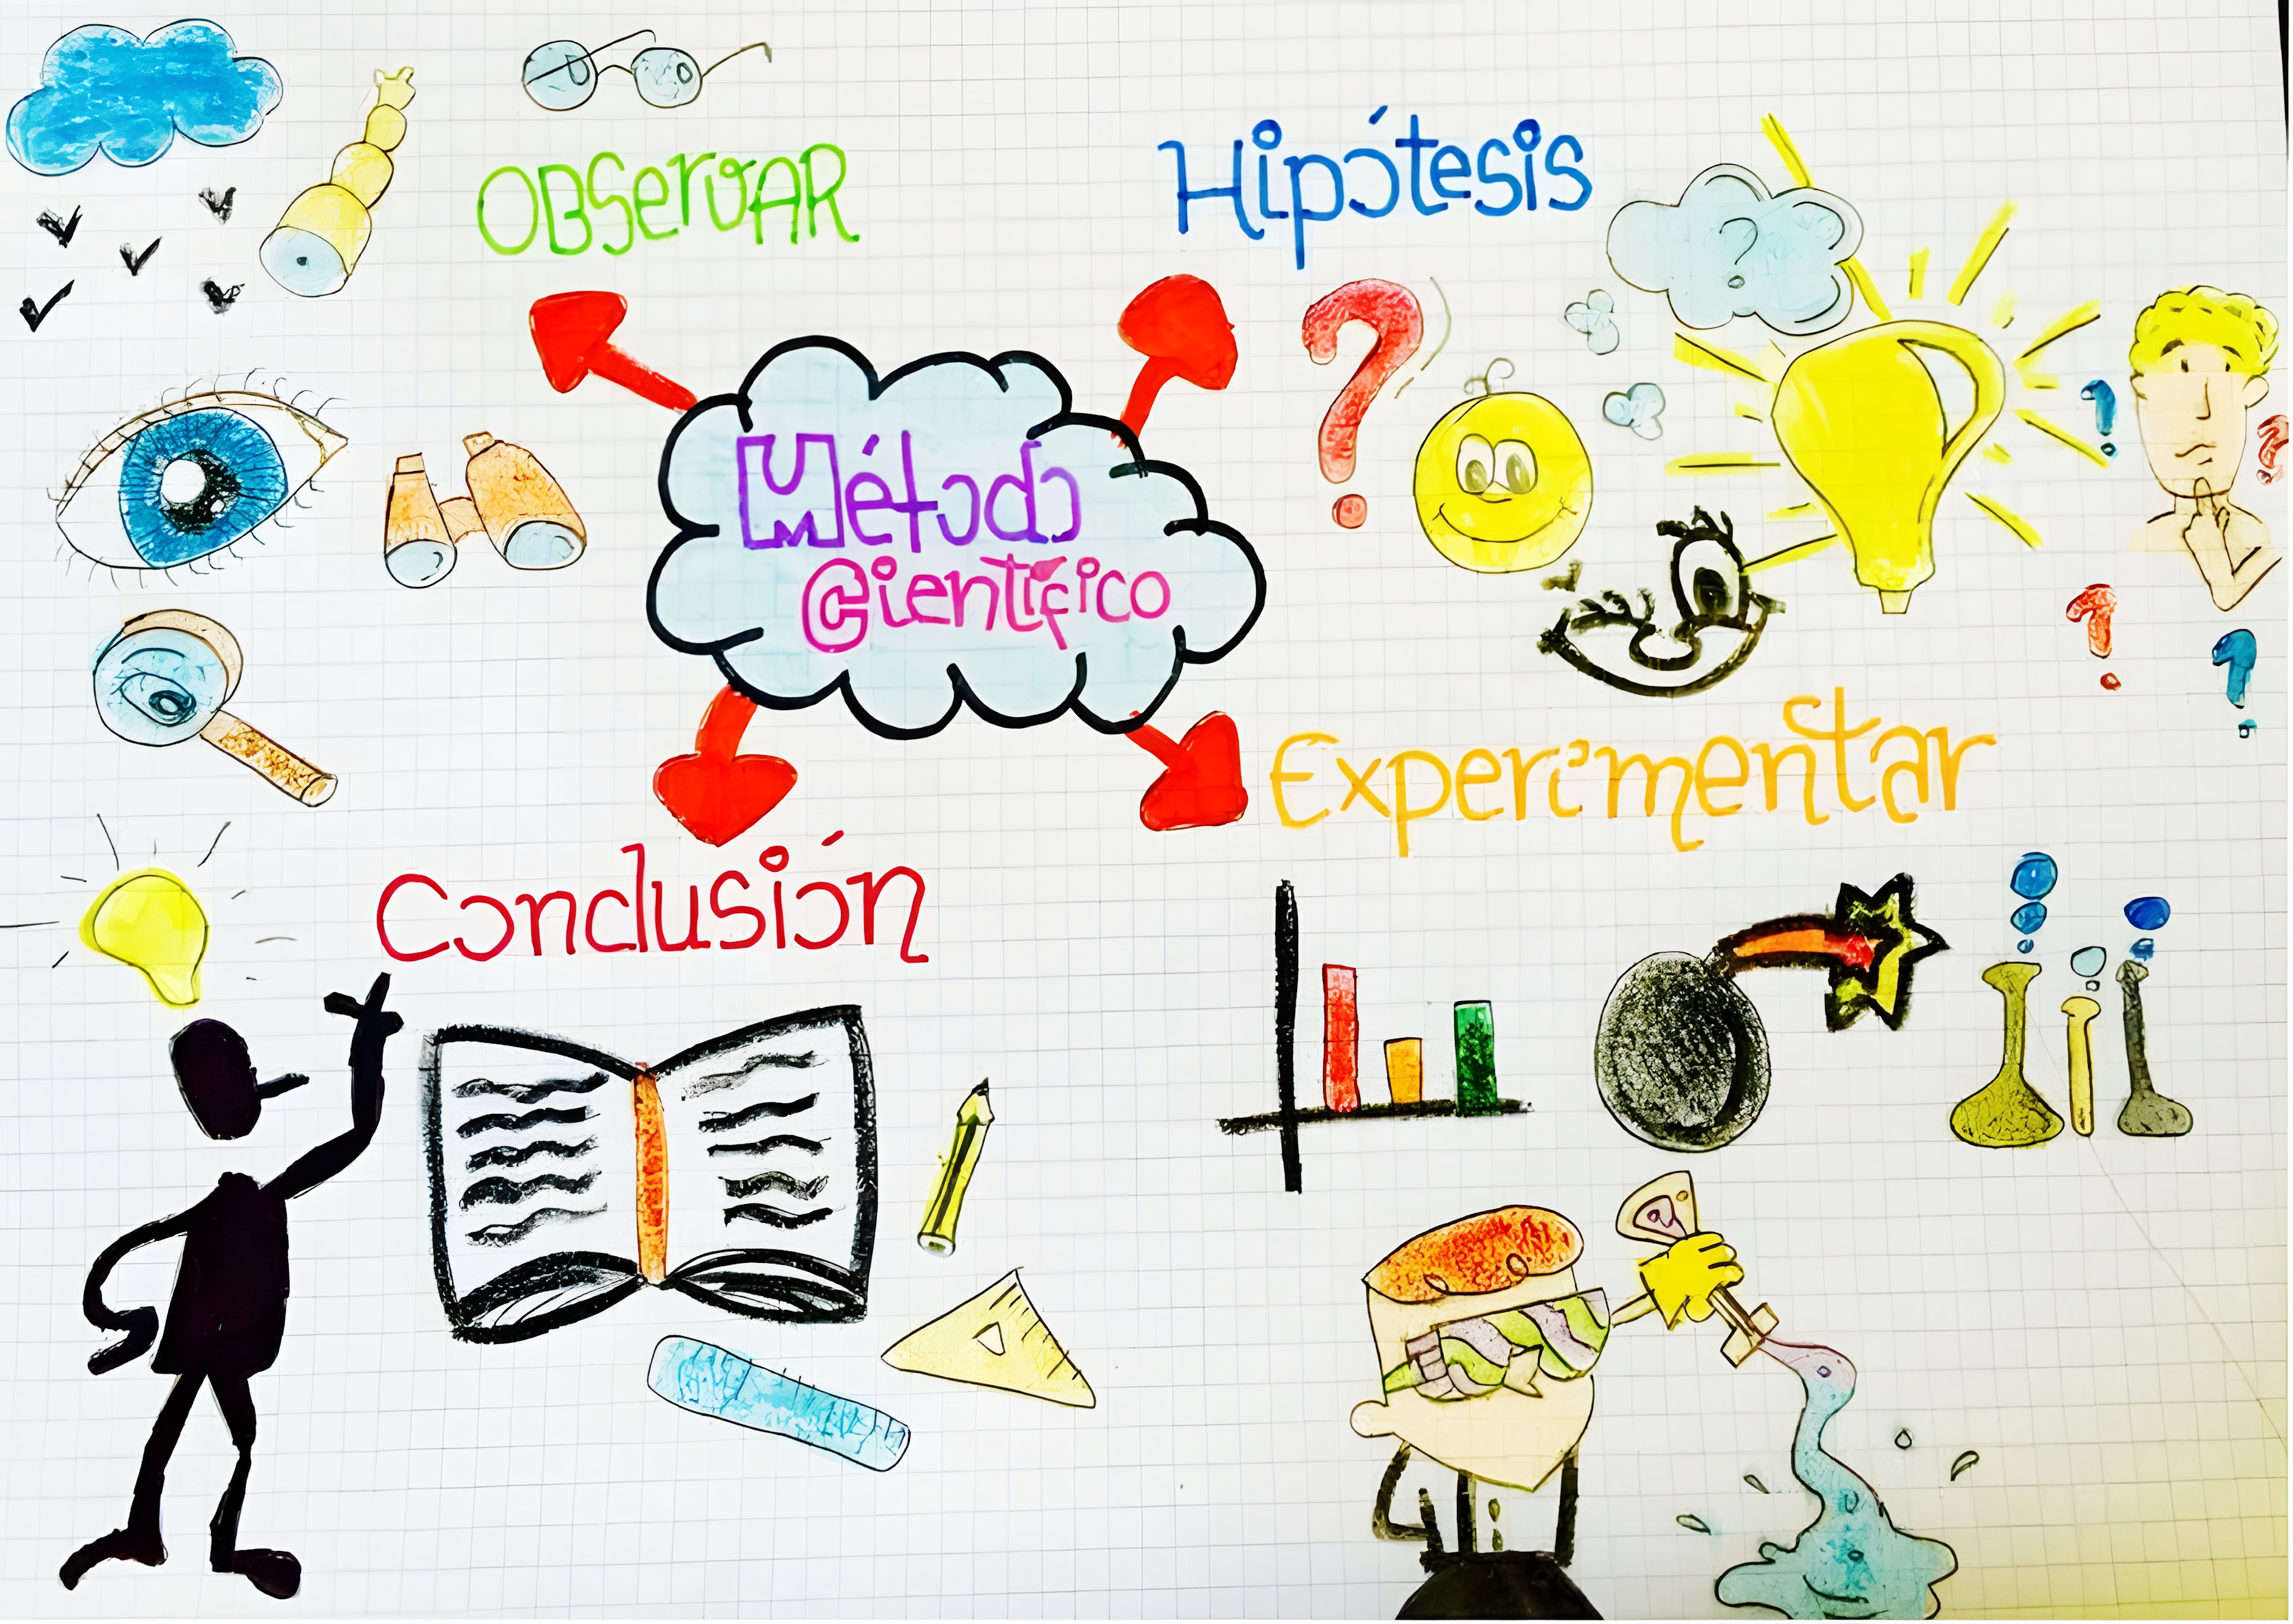 OBSERVAR
Hipótesis
?
Método
Científico
Experimentar
Conclusión